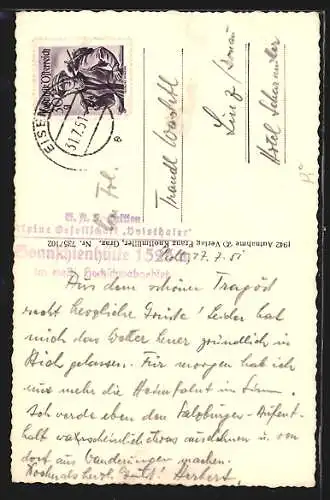 Republik Österreich
EISEN
31.7.51
e
Frl.
Traudl
Linz / Donau
Hotel Scharmüller
Ö. A. S. Sektion
Alpine Gesellschaft "Voisthaler"
Sonnschienhütte 1526
im stmk. Hochschwabgebiet
1942 Aufnahme u. Verlag Franz Knollmüller, Graz. Nr. 7257/102
27.7.51
Aus dem schönen Tragöß
recht herzliche Grüße! Leider hat
mich das Wetter heuer gründlich im
Stich gelassen. Für morgen hab ich
nur mehr die Heimfahrt im Sinn.
Ich werde eben den Salzburger-Aufent-
halt wahrscheinlich etwas ausdehnen u. von
dort aus Wanderungen machen.
Nochmals herzl. Grüße! Herbert.